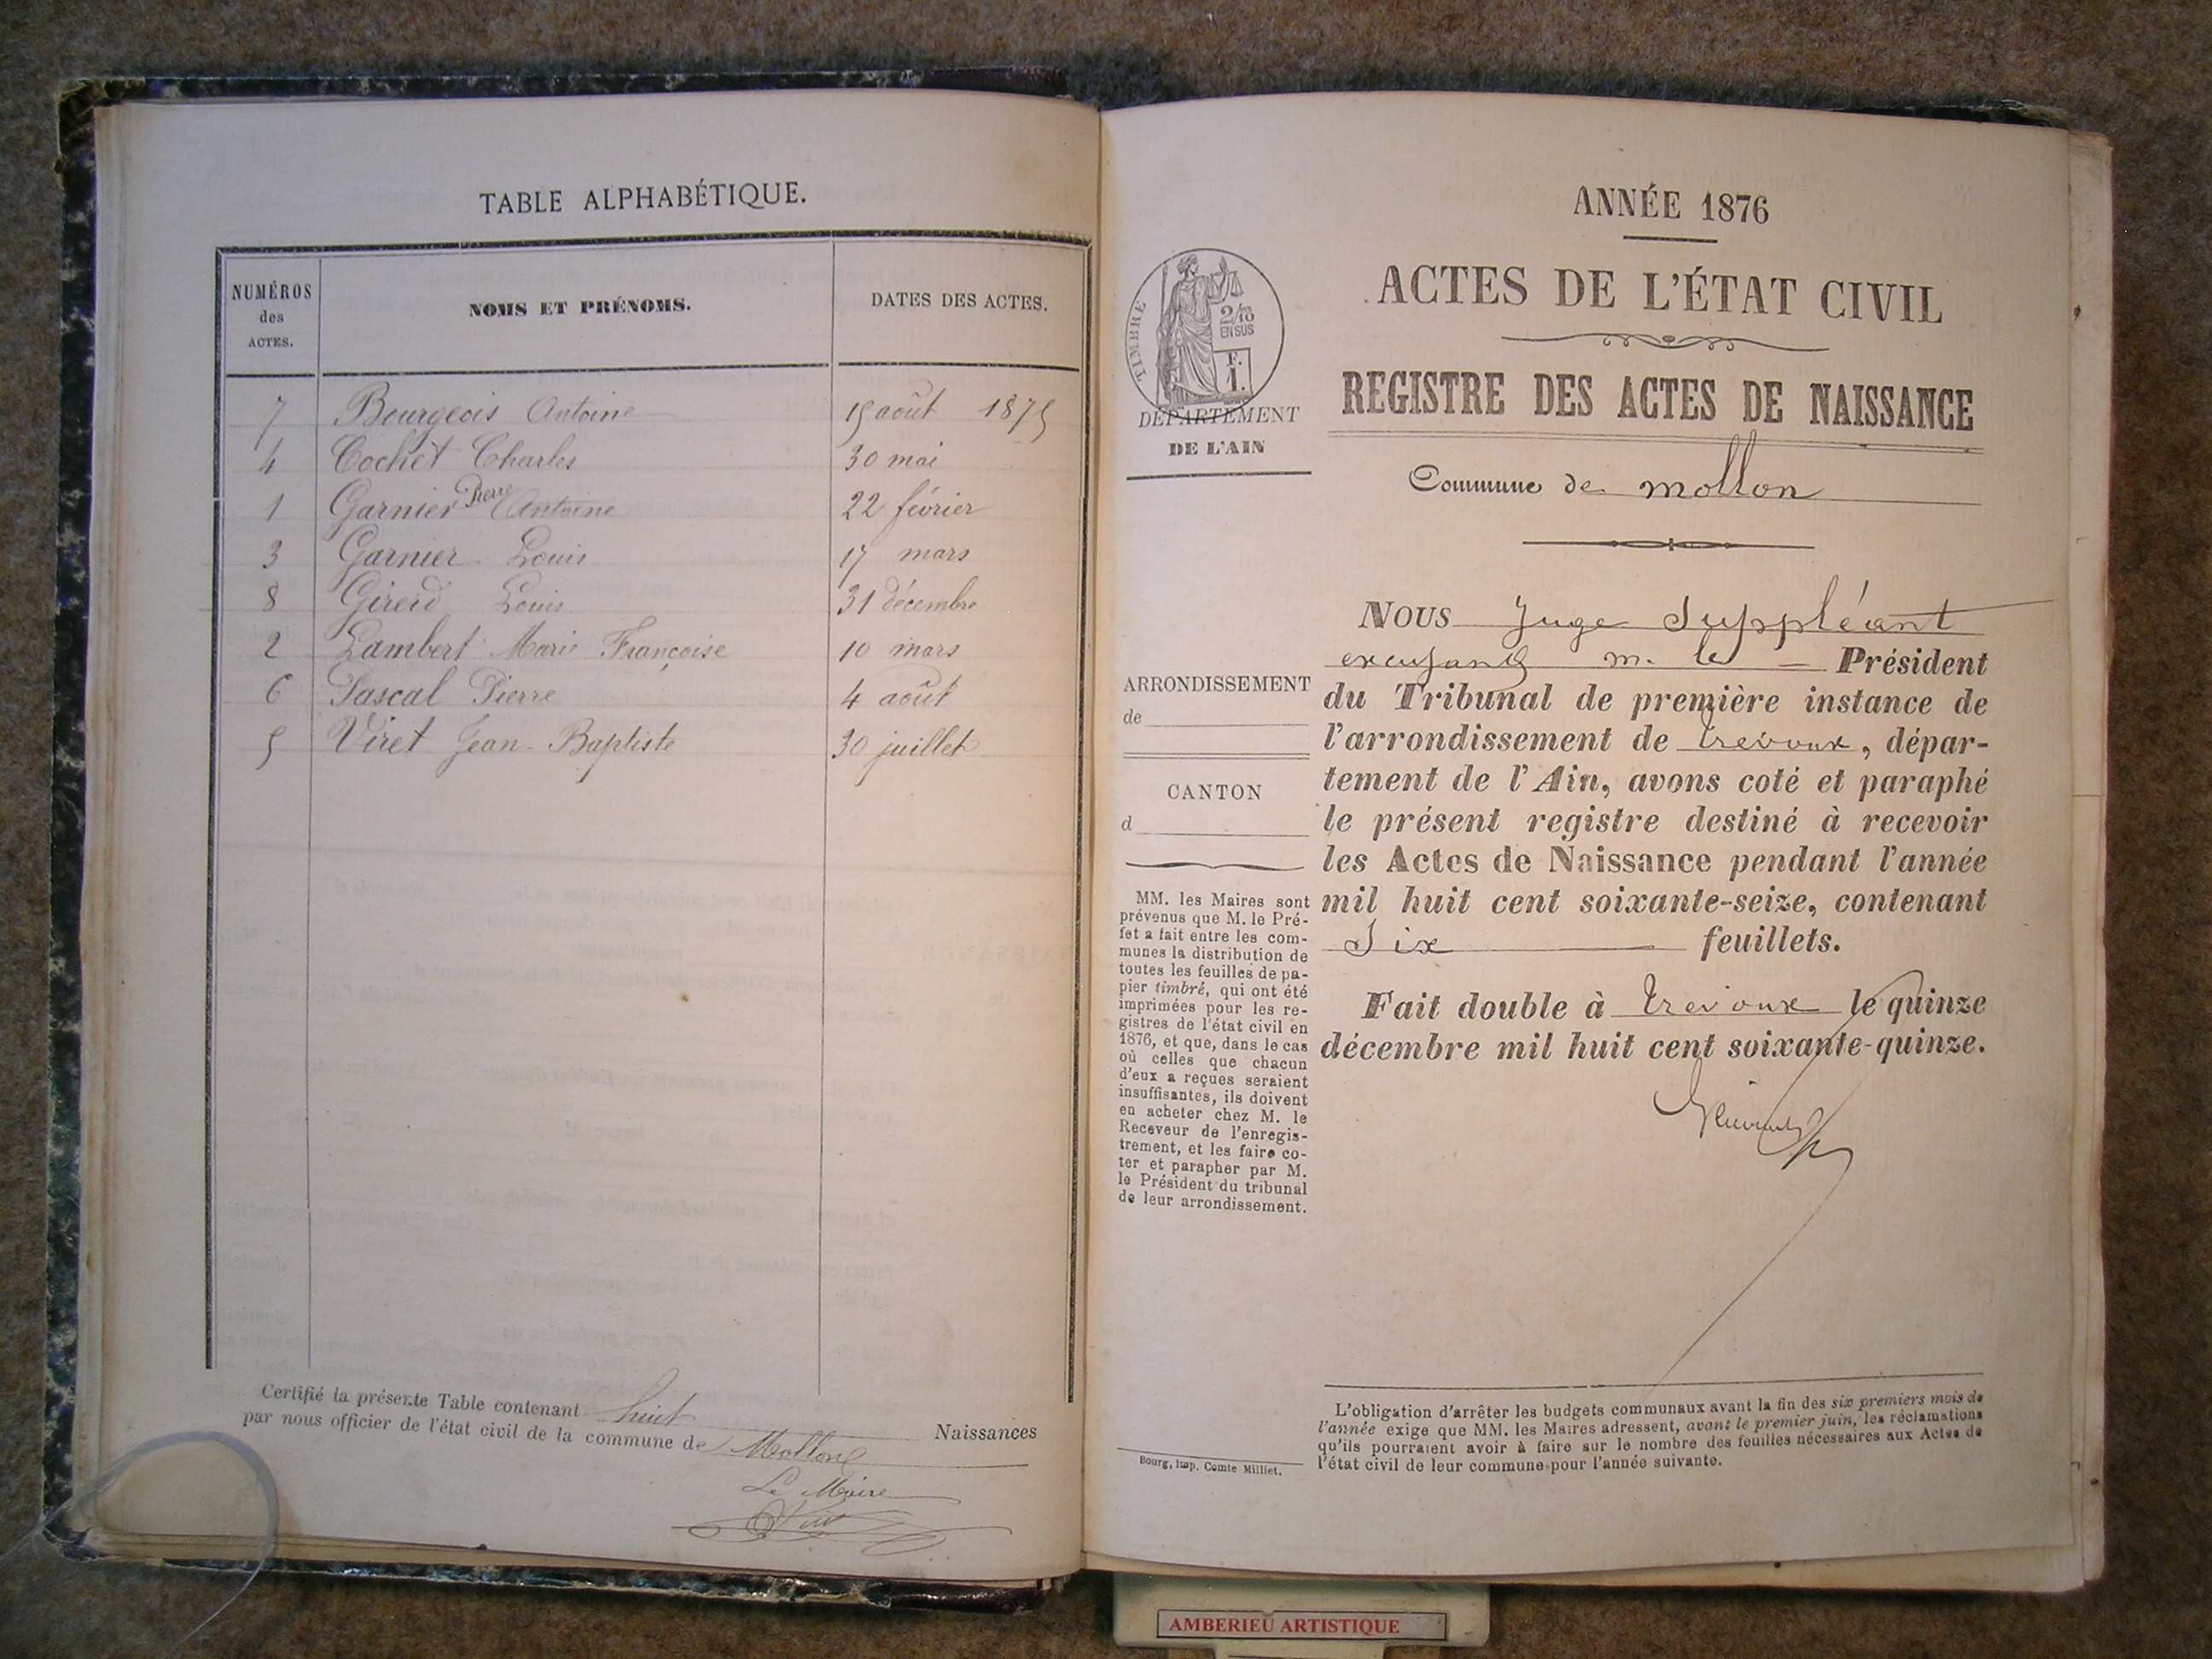 TABLE ALPHABÉTIQUE.
NUMÉROS
des
ACTES.
NOMS ET PRÉNOMS.
DATES DES ACTES.
7 Bourgeois Antoine 15 août 1875
4 Cochet Charles 30 mai
1 Garnier Pierre Antoine 22 février
3 Garnier Louis 17 mars
8 Girerd Louis 31 décembre
2 Lambert Marie Françoise 10 mars
6 Pascal Pierre 4 août
5 Viret Jean-Baptiste 30 juillet
Certifié la présente Table contenant huit Naissances
par nous officier de l'état civil de la commune de Mollon
Le Maire
Viret
ANNÉE 1876
ACTES DE L'ÉTAT CIVIL
REGISTRE DES ACTES DE NAISSANCE
Commune de mollon
TIMBRE
2/10
EN SUS
F.
1.
DÉPARTEMENT
DE L'AIN
ARRONDISSEMENT
de
CANTON
d
MM. les Maires sont
prévenus que M. le Pré-
fet a fait entre les com-
munes la distribution de
toutes les feuilles de pa-
pier timbré, qui ont été
imprimées pour les re-
gistres de l'état civil en
1876, et que, dans le cas
où celles que chacun
d'eux a reçues seraient
insuffisantes, ils doivent
en acheter chez M. le
Receveur de l'enregis-
trement, et les faire co-
ter et parapher par M.
le Président du tribunal
de leur arrondissement.
Bourg, imp. Comte-Milliet.
NOUS Juge Suppléant
m. le Président
du Tribunal de première instance de
l'arrondissement de Trevoux, dépar-
tement de l'Ain, avons coté et paraphé
le présent registre destiné à recevoir
les Actes de Naissance pendant l'année
mil huit cent soixante-seize, contenant
Six feuillets.
Fait double à Trevoux le quinze
décembre mil huit cent soixante-quinze.
L'obligation d'arrêter les budgets communaux avant la fin des six premiers mois de
l'année exige que MM. les Maires adressent, avant le premier juin, les réclamations
qu'ils pourraient avoir à faire sur le nombre des feuilles nécessaires aux Actes de
l'état civil de leur commune pour l'année suivante.
AMBERIEU ARTISTIQUE